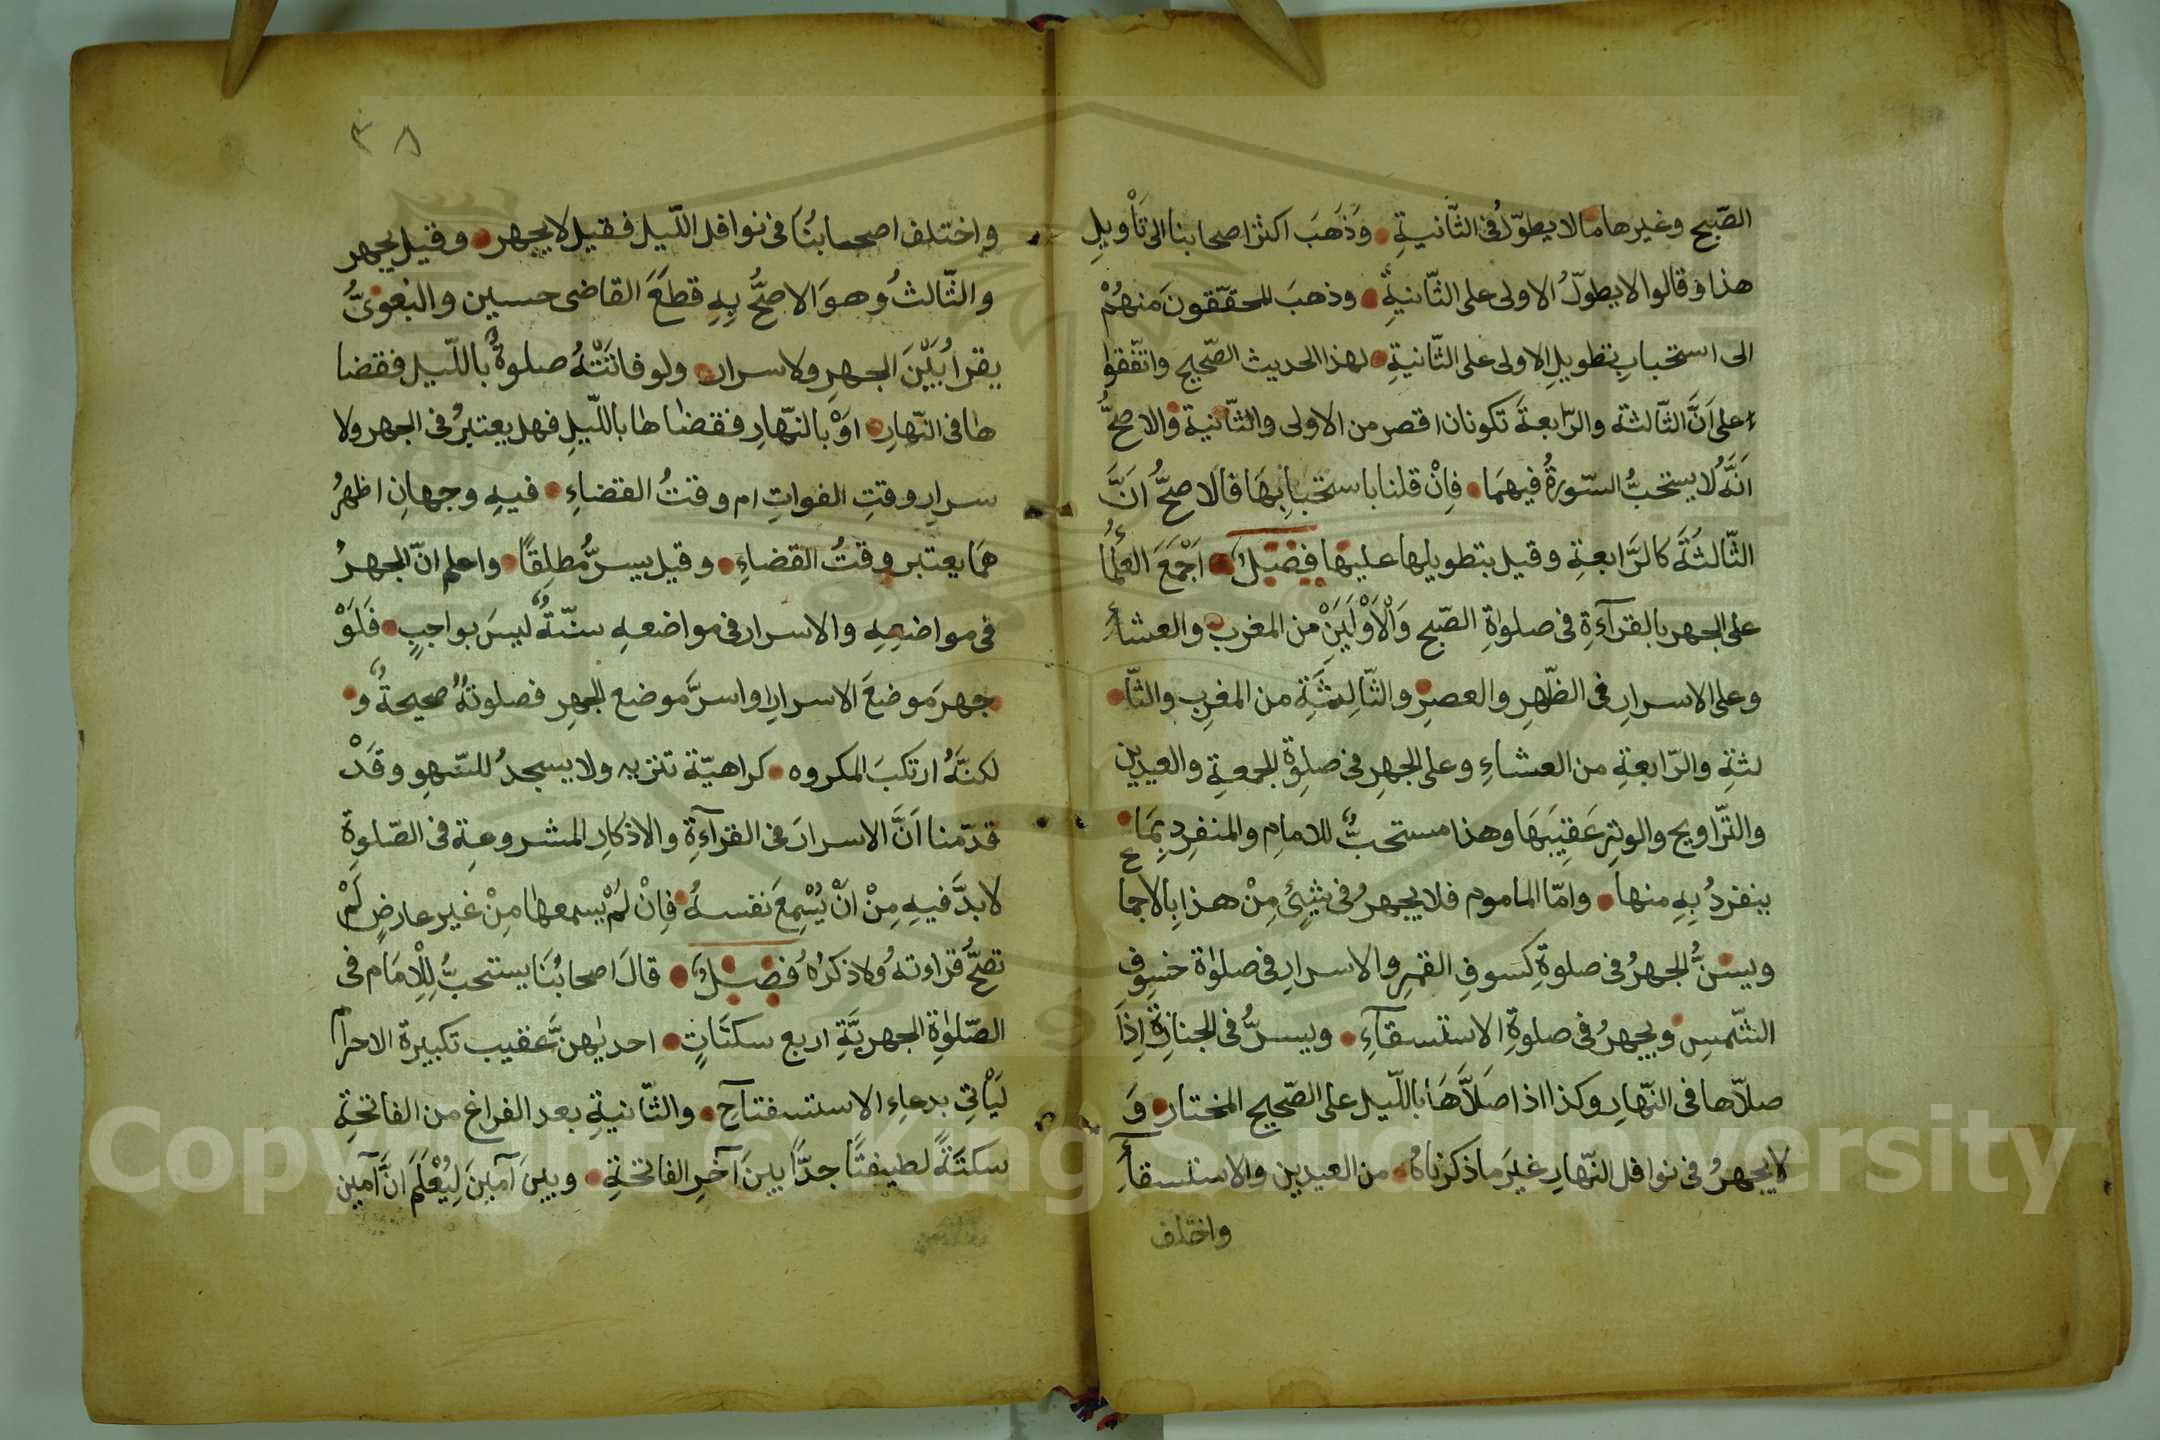 الصّبح وغيرها ما لا يطوّل فى الثّانيةِ وَذَهَبَ اكثر اصحابنا الى تَأْويلِ
هذا وقالوا لا يطوّلُ الاولى على الثّانيةِ وذهبَ المحقّقونَ منهُمْ
الى استحبابِ تطويلِ الاولى على الثّانيةِ لهذا الحديث الصّحيح واتّفقوا
على اَنَّ الثّالثة والرّابعةَ تكونان اقصر من الاولى والثّانية والاصحُّ
اَنَّهُ لا يستحبُّ السّورةُ فيهمَا فاِنْ قلنا باستحبابِهَا فالاصحُّ انَّ
الثّالثَةَ كالرَّابعةِ وقيل بتطويلها عليها فصْلٌ اَجْمَعَ العُلَمَاُ
على الجهر بالقرآءةِ فى صلوٰةِ الصّبح وَالْاَوْلَيَيْنْ من المغرب والعشاءِ
وعلى الاسرارِ فى الظّهرِ والعصرِ والثّالِثَةِ من المغربِ والثّا
لثةِ والرّابعةِ من العشاءِ وعلى الجهرِ فى صلوٰةِ الجمعةِ والعيدين
والتّراويح والوترِ عَقِيبَهَا وهذا مستحبٌّ للامامِ والمنفرِد بِمَا
ينفردُ بِهِ منها وامّا الماموم فلا يجهرُ فى شَيْئٍ مِنْ هذا بِالاجماع
ويسنُّ الجهرُ فى صلوةِ كسوفِ القمرِ والاسرارِ فى صلوٰة خسوفِ
الشّمسِ ويجهرُ فى صلوةِ الاستسقآءِ ويسرُّ فى الجنازةِ اِذَا
صلّاها فى النّهارِ وكذا اذا صَلَّاهَا باللّيل على الصّحيح المختار وَ
لا يجهرُ فى نوافل النّهارِ غيرَ ما ذكرناهُ من العيدين والاستسقآءِ
واختلف
٣٨
واختلف اصحابنُا فى نوافل اللّيل فقيل لا يجهر وقيل يجهر
والثّالثُ وهوَ الاصحُّ بِهِ قطَعَ القاضى حسين والبغوىُّ
يقرأُ بَيْنَ الجهرِ ولاسرار ولو فاتَتْهُ صلوةٌ باللّيل فقضا
ها فى النّهارِ اَوْ بالنّهارِ فقضاها باللّيلِ فهل يعتبرُ فى الجهر ولا
سرارِ وقتِ الفواتِ ام وقتُ القضاءِ فيهِ وجهانِ اظهرُ
همَا يعتبر وقتُ القضاءِ وقيل يسرُّ مُطلِقًا واعلم انّ الجهرُ
فى مواضعِهِ والاسرار فى مواضعهِ سنّةٌ ليسَ بواجبٍ فَلَوْ
جهرَ موضعَ الاسرارِ او اسرَّ موضع الجهرِ فصلوتهُ صحيحةٌ و
لكنَّهُ ارتكبَ المكروه كراهيّة تنزيه ولا يسجدُ للسّهوِ وقَدْ
قدّمنا اَنَّ الاسرارَ فى القرآءةِ والاذكارِ المشروعةِ فى الصّلوةِ
لا بدَّ فيهِ مِنْ اَنْ يُسْمِعَ نفسهُ فاِنْ لَمْ يسمعها مِنْ غير عارضٍ لَمْ
تصحَّ قراءتهُ ولا ذكرُهُ فَصْلٌ قالَ اصحابُنَا يستحبُّ لِلْاِمَام فى
الصّلوٰةِ الجهريَّةِ اربع سكتَاتٍ احديٰهنَّ عقيب تكبيرة الاحرام
لَيَأْتِى بدعاءِ الاستسفتاحِ والثّانيةِ بعد الفراغ من الفاتحةِ
سكتَةً لطيفتًا جدّاً بينَ آخرِ الفاتحةِ وبينَ آمينَ لِيُعْلَمَ انَّ آمين
Copyright © King Saud University